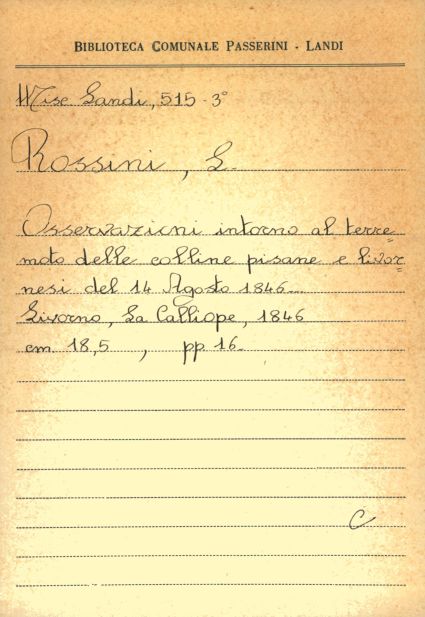 BIBLIOTECA COMUNALE PASSERINI - LANDI
Misc Landi, 515 - 3°
Rossini, L.
Osservazioni intorno al terre=
moto delle colline pisane e livor=
nesi del 14 Agosto 1846
Livorno, La Calliope, 1846
cm. 18,5 , pp 16
C